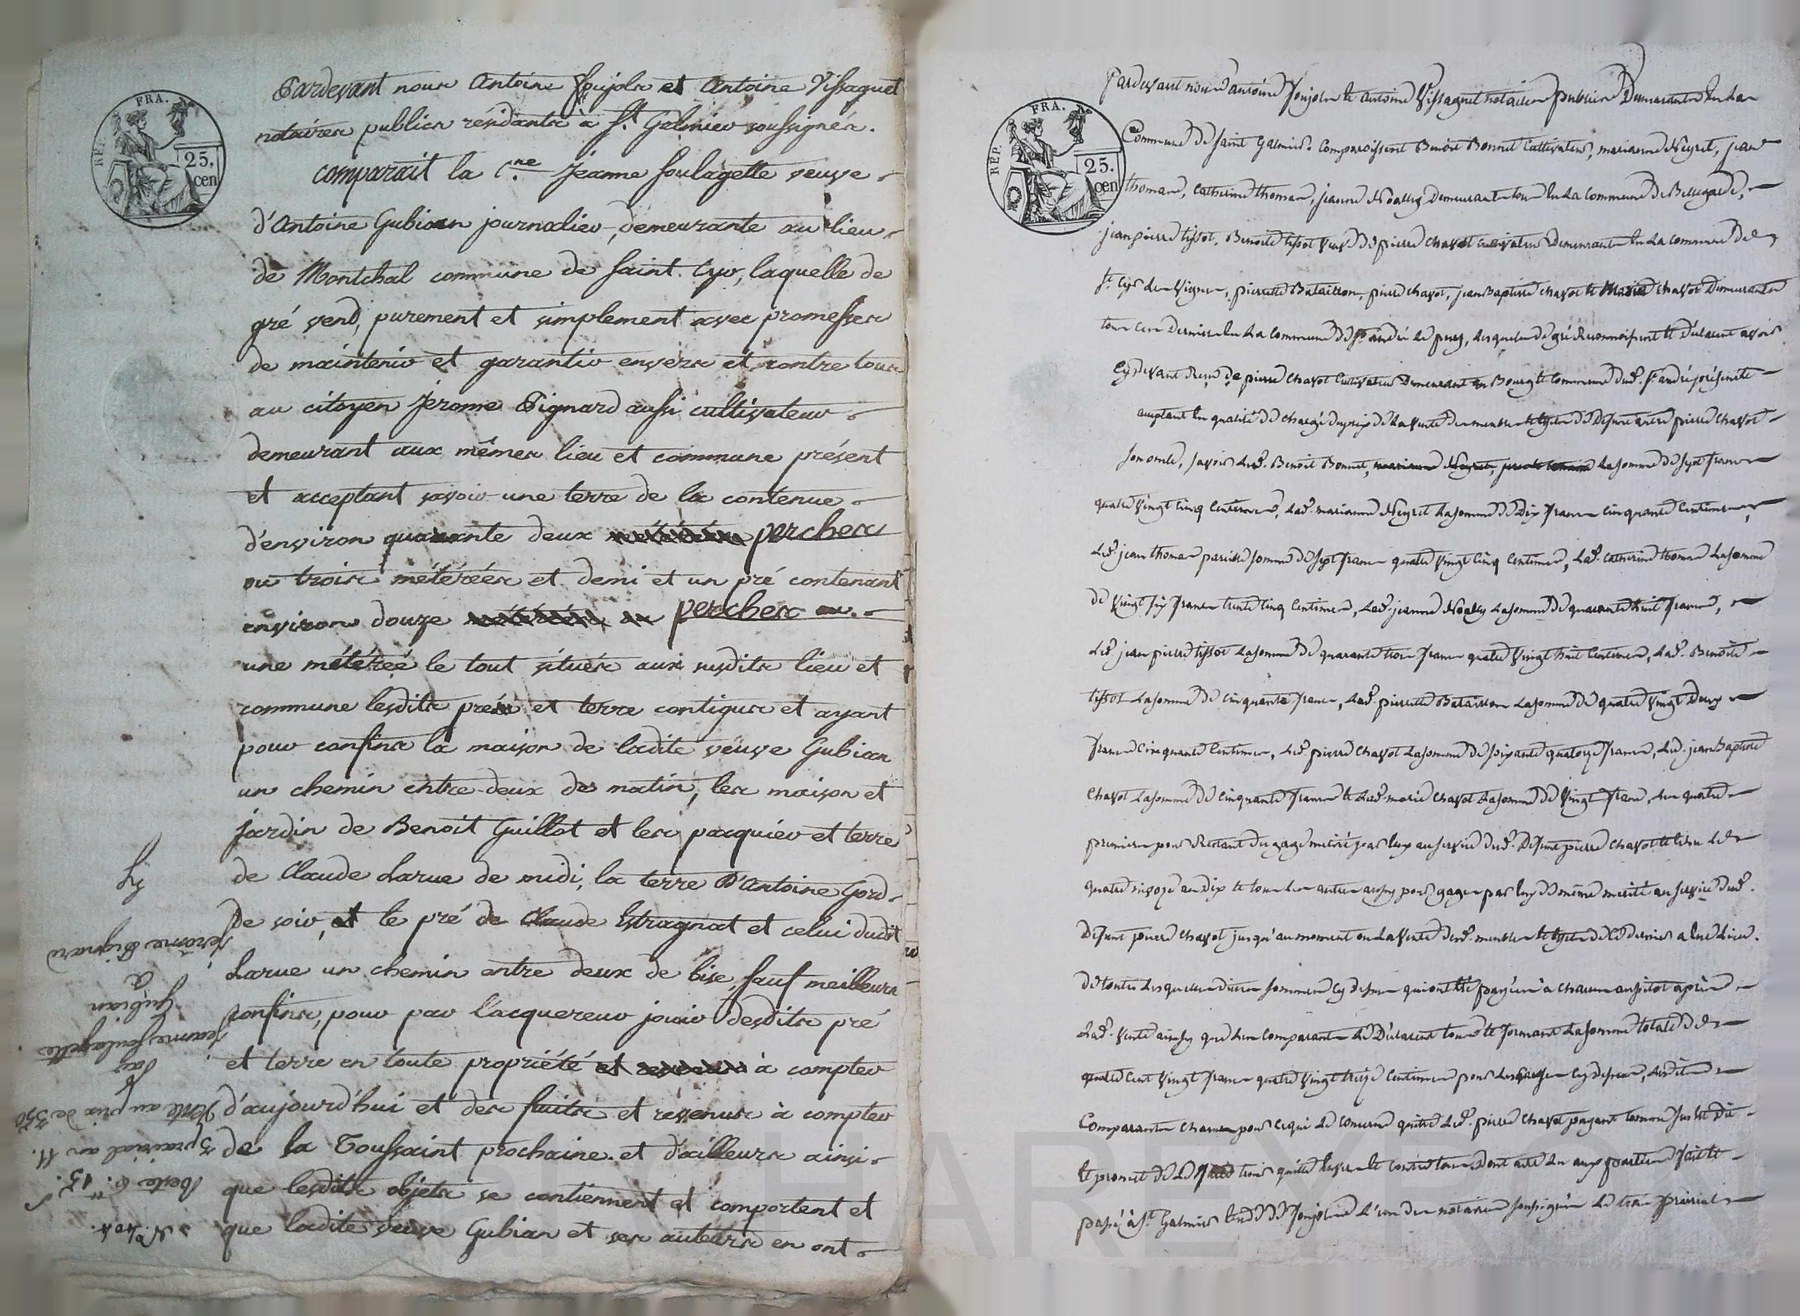 FRA.
REP.
25.
cen
Pardevant nous Antoine Joujols et Antoine Vissaguet
notaires publics résidants à St. Galmier soussignés.
comparait la Cne. Jeanne Soulagette veuve
d'Antoine Gubian journalier, demeurante au lieu
de Montchal commune de Saint Cyr, laquelle de
gré vend, purement et simplement avec promesses
de maintenir et garantir envers et contre tous
au citoyen Jérome Pignard aussi cultivateur
demeurant aux mêmes lieu et commune présent
et acceptant savoir une terre de la contenue
d'environ quarante deux perches
ou trois métérées et demi et un pré contenant
environ douze perches ou
une métérée le tout situés aux susdits lieu et
commune lesdits pré et terre contigus et ayant
pour confins la maison de ladite veuve Gubian
un chemin entre-deux de matin, les maison et
jardin de Benoit Guillot et les pasquier et terre
de Claude Larue de midi, la terre d'Antoine Gord
de soir, et le pré de Claude Estragnat et celui dudit
Larue un chemin entre deux de bise, sauf meilleurs
confins, pour par l'acquereur jouir desdits pré
et terre en toute propriété à compter
d'aujourd'hui et des fruits et revenus à compter
de la Toussaint prochaine. et d'ailleurs ainsi
que lesdits objets se contiennent et comportent et
que ladite veuve Gubian et ses auteurs en ont
Jérome Pignard
à
Gubian
Jeanne Soulagette
par
Vente au prix de 350
3 prairial an 11.
FRA.
REP.
25.
cen
Pardevant nous antoine Joujols et antoine Vissaguet notaires publics Demeurants en La
Commune de Saint Galmier. Comparoissent Benoit Bonnet Cultivateur, marianne Neyret, jean
thomas, Catherine thomas, jeanne Noally Demeurants tous en La Commune de Bellegarde,
jean pierre tissot, Benoite tissot veuve de pierre Chavot Cultivateur demeurants en La Commune de
St. Cyr les Vignes, pierrette Bataillon, pierre Chavot, jean Baptiste Chavot et Marie Chavot Demeurants
tous Ces Derniers en La Commune de St. andré Le puy, Lesquels de gré Reconnoissent et Déclarent avoir
Cy devant Reçu de pierre Chavot Cultivateur Demeurant en Bourg et Commune dud. St. andré présent et
acceptant en qualité de Chargé du prix de La Vente des meubles et effets de Defunt autre pierre Chavot
Son oncle, Savoir Led. Benoit Bonnet, La Somme de Sept francs
quatre Vingt Cinq Centimes, Lad. marianne Neyret La Somme de Dix francs Cinquante Centimes,
Led. jean thomas pareille Somme de Sept francs quatre Vingt Cinq Centimes, Lad. Catherine thomas La Somme
de Vingt Six francs trente Cinq Centimes, Lad. jeanne Noally La Somme de quarante huit francs,
Led. jean pierre tissot La Somme de quarante trois francs quatre Vingt huit Centimes, Lad. Benoite
tissot La Somme de Cinquante francs, Lad. pierrette Bataillon La Somme de quatre Vingt Deux
francs Cinquante Centimes, Led. pierre Chavot La Somme de Soixante quatorze francs, Led. jean Baptiste
Chavot La Somme de Cinquante francs et Lad. marie Chavot La Somme de Vingt francs, Les quatre
premiers pour Restant des gages mérités par Eux au Service dud. Defunt pierre Chavot
et tous Les autres aussy pour gages par Eux de même mérités au Service dud.
Defunt pierre Chavot jusqu'au moment où La Vente desd. meubles et effets de Ce Dernier a eu Lieu.
De toutes Lesquelles dites Sommes Cy dessus qui ont été payées à Chacun aussitot après
Lad. Vente ainsy que Les Comparants Le Déclarent tous et formant La Somme totale de
quatre Cent Vingt francs quatre Vingt treize Centimes pour Les Causes Cy dessus, Lesdits
Comparants Chacun pour Ce qui Le Concerne quitte Led. pierre Chavot payant
et promet de Le tenir quitte Envers et Contre tous dont acte fait et
passé à St. Galmier Etude de Joujols L'un des notaires Soussignés Le trois prairial
AREYRON